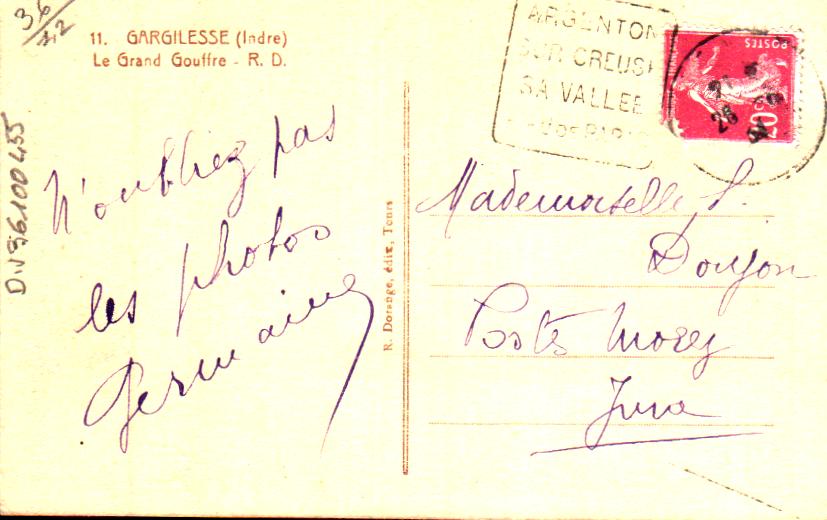 36/
12
11. GARGILESSE (Indre)
Le Grand Gouffre - R. D.
ARGENTON
SUR CREUSE
SA VALLEE
POSTES
20c
28
D.V36.100455
N'oubliez pas
les photos
Germaine
R. Dorange, édit, Tours
Mademoiselle S.
Doujon
Postes Morez
Jura